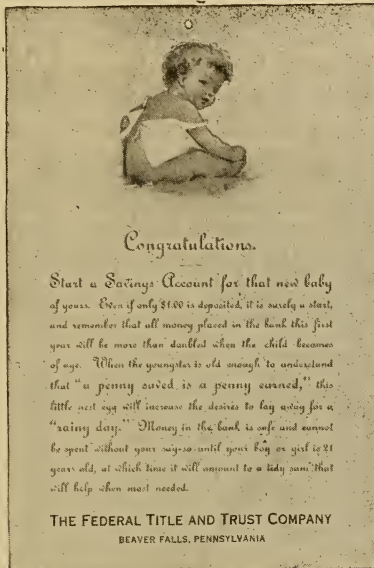 Congratulations.
Start a Savings Account for that new baby
of yours. Even if only $1.00 is deposited, it is surely a start,
and remember that all money placed in the bank this first
year will be more than doubled when the child becomes
of age. When the youngster is old enough to understand
that "a penny saved is a penny earned," this
little nest egg will increase the desires to lay away for a
"rainy day." Money in the bank is safe and cannot
be spent without your say-so until your boy or girl is 21
years old, at which time it will amount to a tidy sum that
will help when most needed.
THE FEDERAL TITLE AND TRUST COMPANY
BEAVER FALLS, PENNSYLVANIA